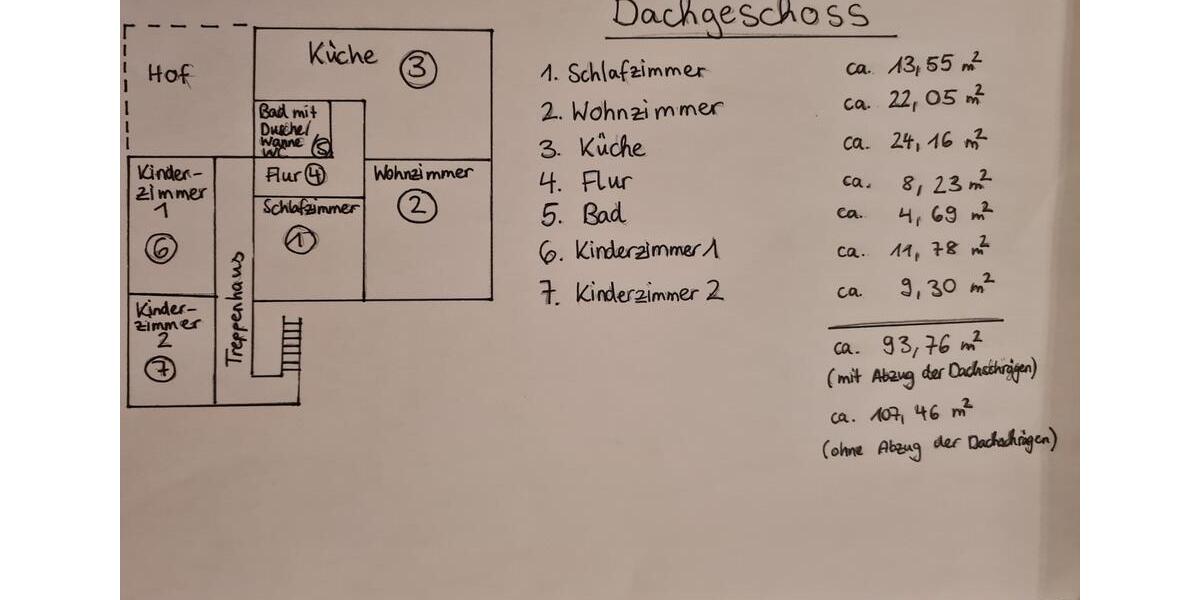 Dachgeschoss
Hof
Küche 3
Bad mit
Dusche/
Wanne/
WC 5
Flur 4
Wohnzimmer
2
Schlafzimmer
1
Kinder-
zimmer
1
6
Kinder-
zimmer
2
7
Treppenhaus
1. Schlafzimmer ca. 13,55 m²
2. Wohnzimmer ca. 22,05 m²
3. Küche ca. 24,16 m²
4. Flur ca. 8,23 m²
5. Bad ca. 4,69 m²
6. Kinderzimmer 1 ca. 11,78 m²
7. Kinderzimmer 2 ca. 9,30 m²
ca. 93,76 m²
(mit Abzug der Dachschrägen)
ca. 107,46 m²
(ohne Abzug der Dachschrägen)